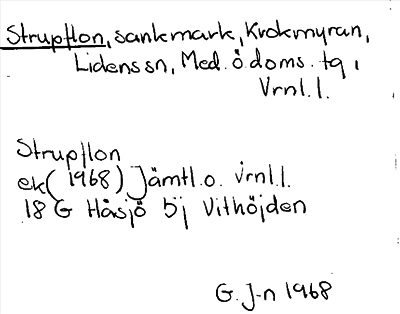 Strupflon, sankmark, Krokmyran,
Lidens sn, Med. ö. doms. tg,
Vrnl. l.
Strupflon
ek (1968) Jämtl. o. Vrnl. l.
18 G Håsjö 5j Vithöjden
G. J-n 1968